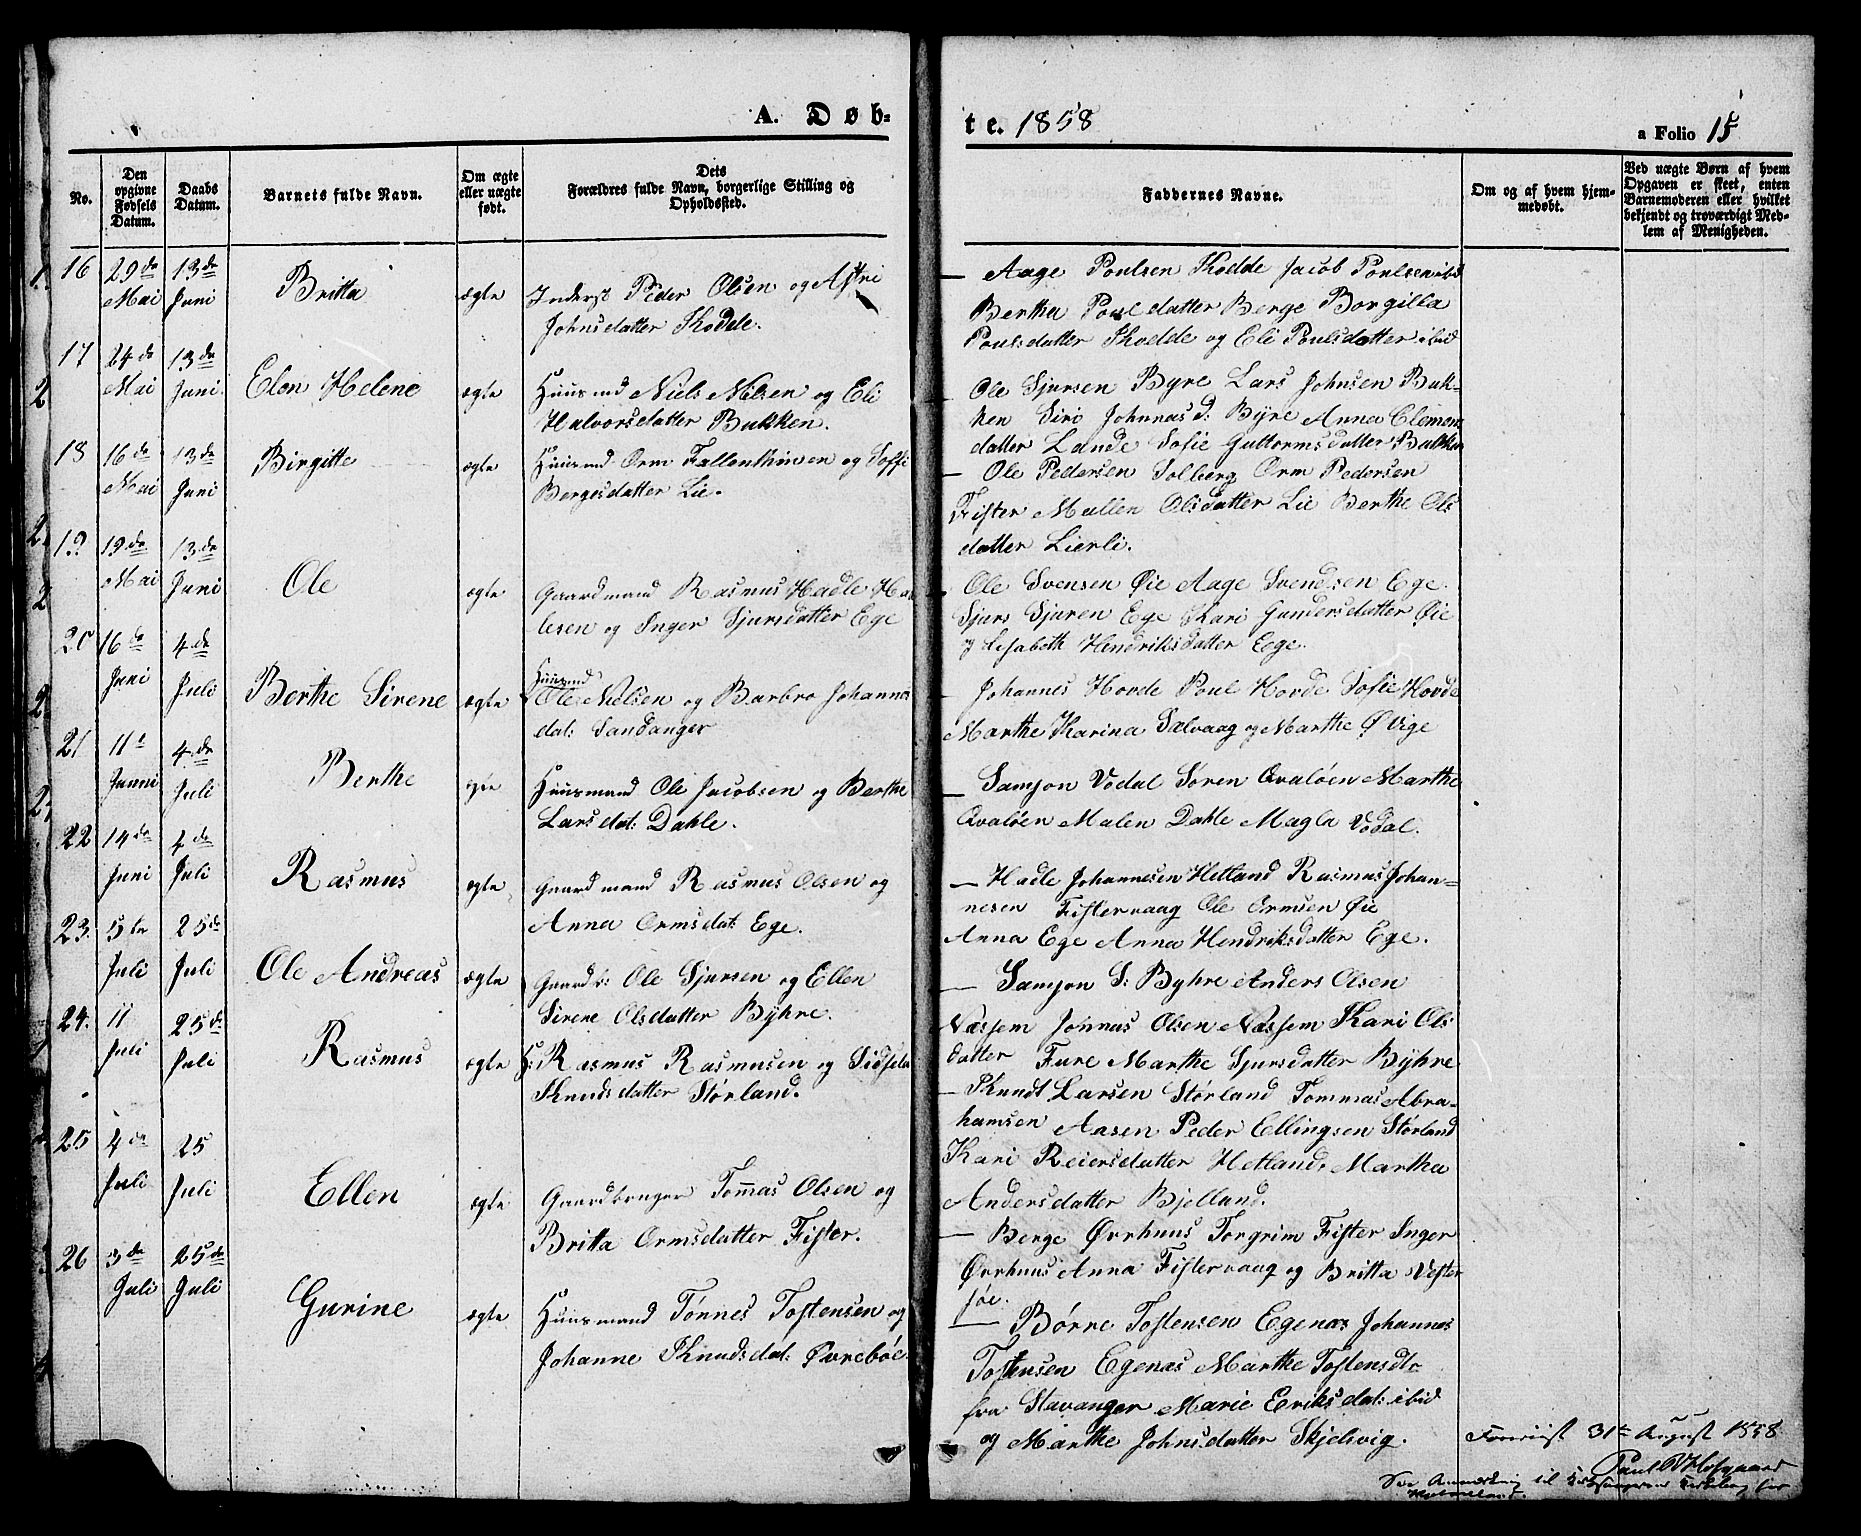 A. Døb-
te. 1858
a Folio 15
No.
Den opgivne Fødsels Datum.
Daabs Datum.
Barnets fulde Navn.
Om ægte eller uægte født.
Dets Forældres fulde Navn, borgerlige Stilling og Opholdssted.
Faddernes Navne.
Om og af hvem hjemmedøbt.
Ved uægte Børn af hvem Opgaven er skeet, enten Barnemoderen eller hvilket bekjendt og troværdigt Medlem af Menigheden.
16 29de Mai 13de Juni Britta ægte Inderst Peder Olsen og Astri
Johnsdatter Skodde.
– Aage Poulsen Skodde Jacob Poulsen ibid
Bertha Poulsdatter Berge Borgilla
Poulsdatter Skodde og Eli Poulsdatter ibid
17 24de Mai 13de Juni. Elen Helene ægte Huusmd Niels Nilsen og Eli
Halvorsdatter Bukken.
– Ole Sjursen Byre Lars Johnsen Buk-
ken Siri Johnnasd: Byre Anna Clemens
datter Lande Sofie Guttormsdatter Bukken
18 16de Mai 13de Juni Birgitte ægte Huusmd Orm Fallentinsen og Soffi
Bergesdatter Lie.
– Ole Pedersen Solberg Orm Pedersen
Fister Mallen Olsdatter Lie Berthe Ols
datter Lierli.
19 19de Mai 13de Juni Ole ægte Gaardmand Rasmus Hadle Ha
lesen og Inger Sjursdatter Ege
– Ole Svensen Øie Aage Svendsen Ege
Sjurs Sjuren Ege Kari Gundersdatter Øie
og Lisabeth Hendriksdatter Ege.
20 16de Juni 4de Juli Berthe Sirene ægte Huusmd
Ole Nielsen og Barbro Johannes
dat: Sandanger
– Johannes Hovde Poul Hovde Sofie Hovde
Marthe Karina Sælvaag og Marthe Øvige
21 11te Junni 4de Juli Berthe ægte Huusmand Ole Jacobsen og Berthe
Larsdat: Dahle.
– Samson Vodal Søren Qvaløen Marthe
Qvaløen Malen Dahle Magla Vodal.
22 14de Juni 4de Juli Rasmus ægte Gaardmand Rasmus Olsen og
Anna Ormsdat: Ege.
– Hadle Johannesen Hetland Rasmus Johan-
nesen Fistervaag Ole Ormsen Øie
Anna Ege Anna Hendriksdatter Ege.
23. 5te Juli 25de Juli Ole Andreas ægte Gaardb: Ole Sjursen og Ellen
Sirene Olsdatter Byhre.
– Samson S: Byhre Anders Olsen
Næssem Jonnas Olsen Næssem Kari Ols
datter Fure Marthe Sjursdatter Byhre
24. 11 Juli 25de Juli Rasmus ægte H: Rasmus Rasmusen og Sidsela
Knudsdatter Størland.
– Knudt Larsen Størland Tommas Abra-
hamsen Aasen Peder Ellingsen Størland
Kari Reiersdatter Hetland, Martha
Andersdatter Bjelland.
25 4de Juli 25 Juli Ellen ægte Gaardbruger Tommas Olsen og
Britta Ormsdatter Fister.
– Berge Ørrhuus Torgrim Fister Inger
Ørrhuus Anna Fistervaag og Britta Vester
søe.
26 3de Juli 25de Juli Gurine ægte Huusmand Tønnes Tostensen og
Johanne Knudsdat: Øvrebøe
– Børre Tostensen Egenæs Johannes
Tostensen Egenæs Marthe Tostensdtr
fra Stavanger Marie Eriksdat: ibid
og Marthe Johnsdatter Skjelvig.
Foreviist 31te August 1858